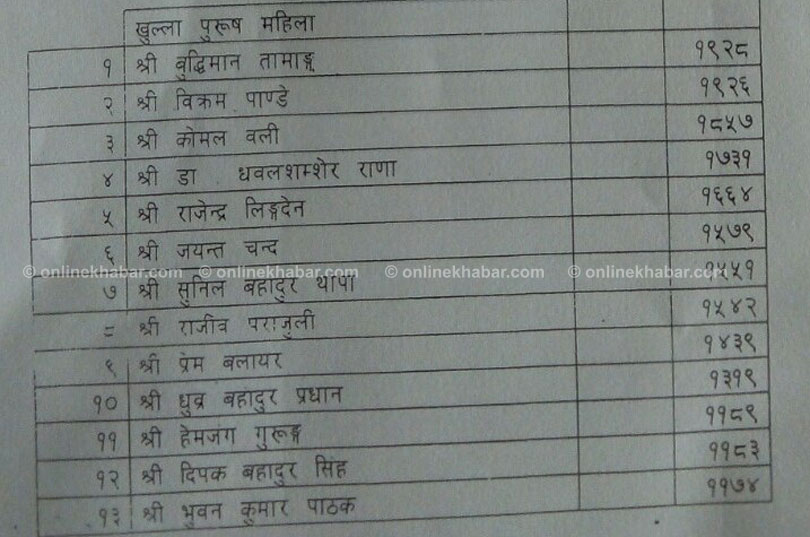 खुल्ला पुरूष महिला
१ श्री वुद्धिमान तामाङ्ग १९२८
२ श्री विक्रम पाण्डे १९२६
३ श्री कोमल वली १८५७
४ श्री डा . धवलशम्शेर राणा १७३१
५ श्री राजेन्द्र लिङ्गदेन १६६४
६ श्री जयन्त चन्द १५७९
© onlinekhabar.com © onlinekhabar.com © onlinekhabar.com © onlinekhabar.com
७ श्री सुनिल बहादुर थापा १५५१
८ श्री राजीव पराजुली १५४२
९ श्री प्रेम बलायर १४३९
१० श्री धुव्र बहादुर प्रधान १३१९
११ श्री हेमजंग गुरूङ्ग ११८९
१२ श्री दिपक बहादुर सिंह ११८३
१३ श्री भुवन कुमार पाठक ११७४